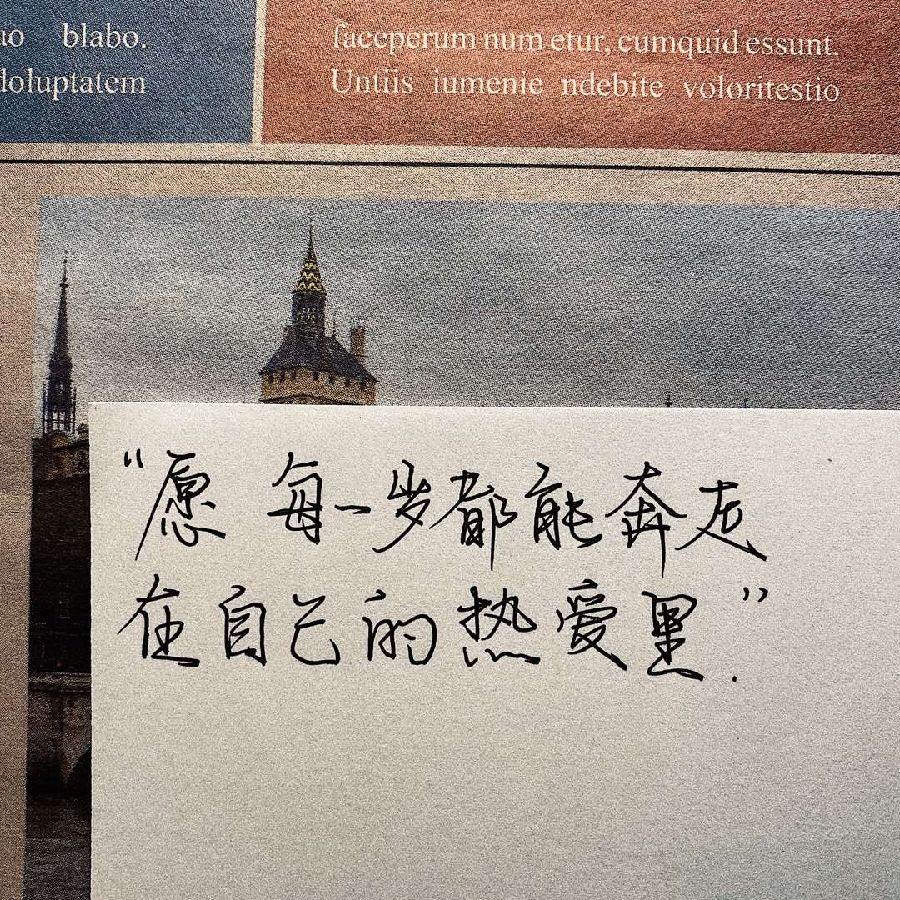 uo blabo.
doluptatem
faceperum num etur, cumquid essunt.
Untiis iumenie ndebite voloritestio
“愿 每一步都能奔走
在自己的热爱里.”